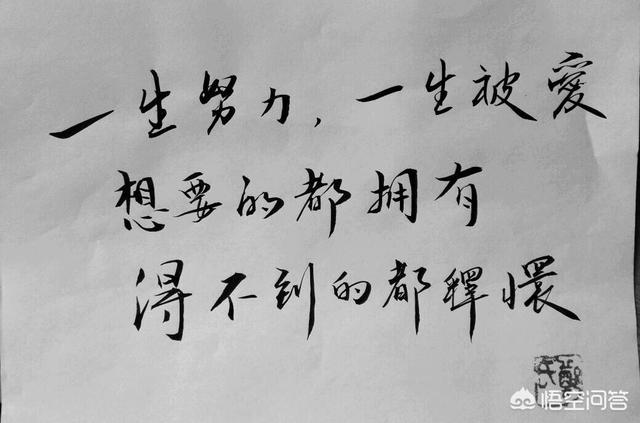 一生努力，一生被愛
想要的都拥有
得不到的都釋懷
悟空问答